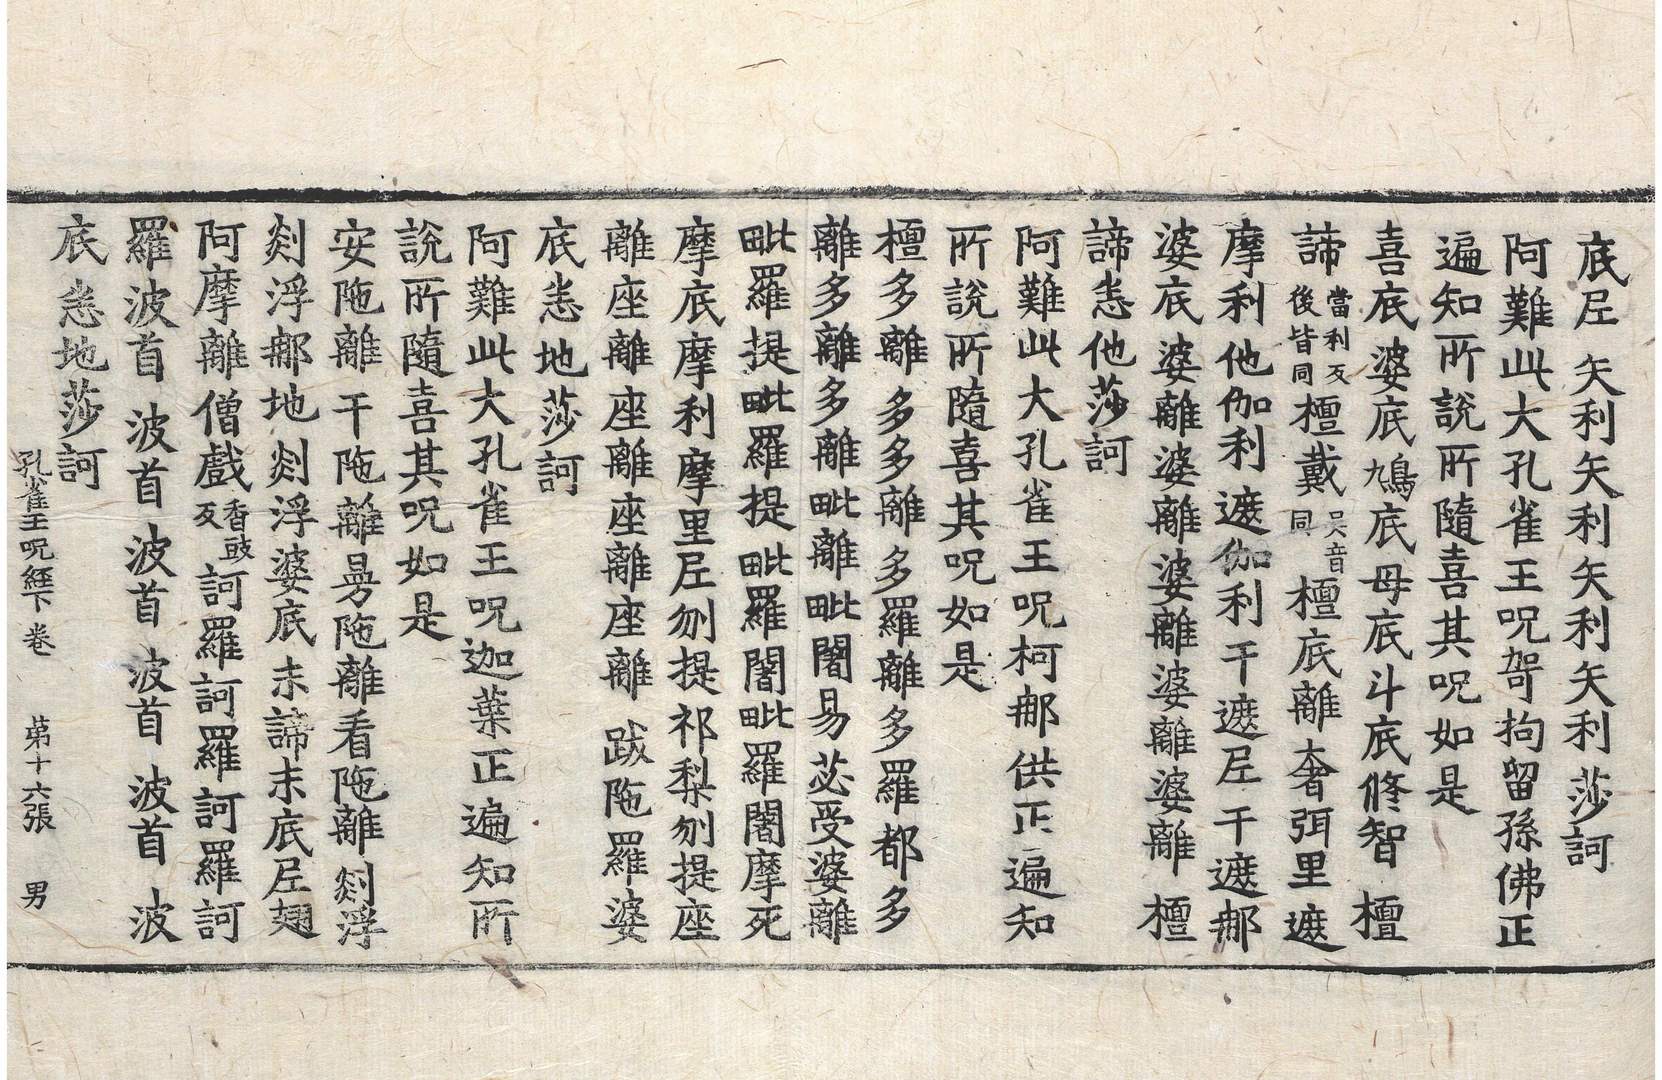 底尼 矢利矢利矢利矢利 莎訶
阿難此大孔雀王呪哿拘留孫佛正
遍知所說所隨喜其呪如是
喜底婆底鳩底母底斗底修智 檀
諦當利反後皆同檀戴吴音同檀底離奢弭里遮
摩利他伽利遮伽利干遮尼干遮那
婆底婆離婆離婆離婆離婆離 檀
諦恙他莎訶
阿難此大孔雀王呪柯那供正遍知
所說所隨喜其呪如是
檀多離多多離多羅離多羅都多
離多離多離毗離毗闍易苾受婆離
毗羅提毗羅提毗羅闍毗羅闍摩死
摩底摩利摩里尼刎提祁梨刎提座
離座離座離座離座離 跋陁羅婆
底恙地莎訶
阿難此大孔雀王呪迦葉正遍知所
說所隨喜其呪如是
安陁離干陁離曼陁離看陁離剡浮
剡浮那地剡浮婆底末諦末底尼翅
阿摩離僧戲香豉反訶羅訶羅訶羅訶
羅波首 波首 波首 波首 波首 波
底恙地莎訶
孔雀王呪經下卷 第十六張 男